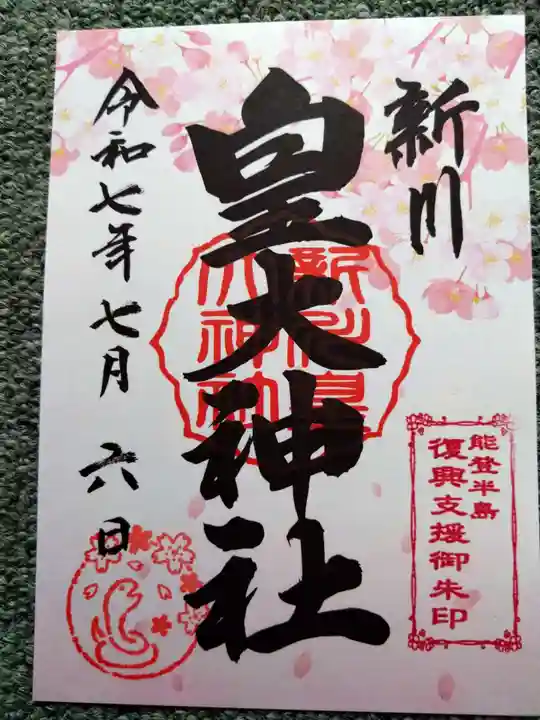 新川
皇大神社
令和七年七月六日
新川皇
大神社
能登半島
復興支援御朱印